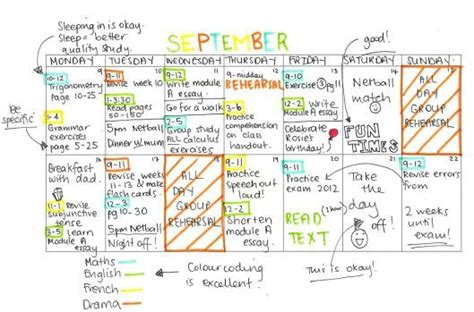 Sleeping in is okay.
Sleep = better
quality study.
SEPTEMBER
good!
MONDAY TUESDAY WEDNESDAY THURSDAY FRIDAY SATURDAY SUNDAY
Be
specific
10-12
Trigonometry
page 10-25
1-4
Grammar
exercises
page 5-25
9-11
revise week 10
1-3:30
Read pages
50-150
5pm Netball
Dinner w/mum
9-12
Write module
A essay.
Go for a walk
2-5
Group study
ALL calculus
exercises
9-midday
REHEARSAL
3-6
Practice
comprehension
on class
handout.
9-10
Exercise
11-2 Write
Module A essay
Celebrate
Rosie's
birthday!
Netball
match
FUN
TIMES
ALL
DAY
GROUP
REHEARSAL
Breakfast
with dad.
11-1 Revise
Subjunctive
tense
3-5 learn
Module A
essay
9-11
Revise weeks
11-13 & make
flash cards
12-3
pg 10-30
5pm Netball
Night off!
ALL
DAY
GROUP
REHEARSAL
9-11
Practice
speech out
loud!
Shorten
module A
essay
9-11
Practice
exam 2012
READ
TEXT
Take
the
day
off!
Revise errors
from
2 weeks
until
exam!
Maths
English
French
Drama
Colour coding
is excellent.
This is okay!